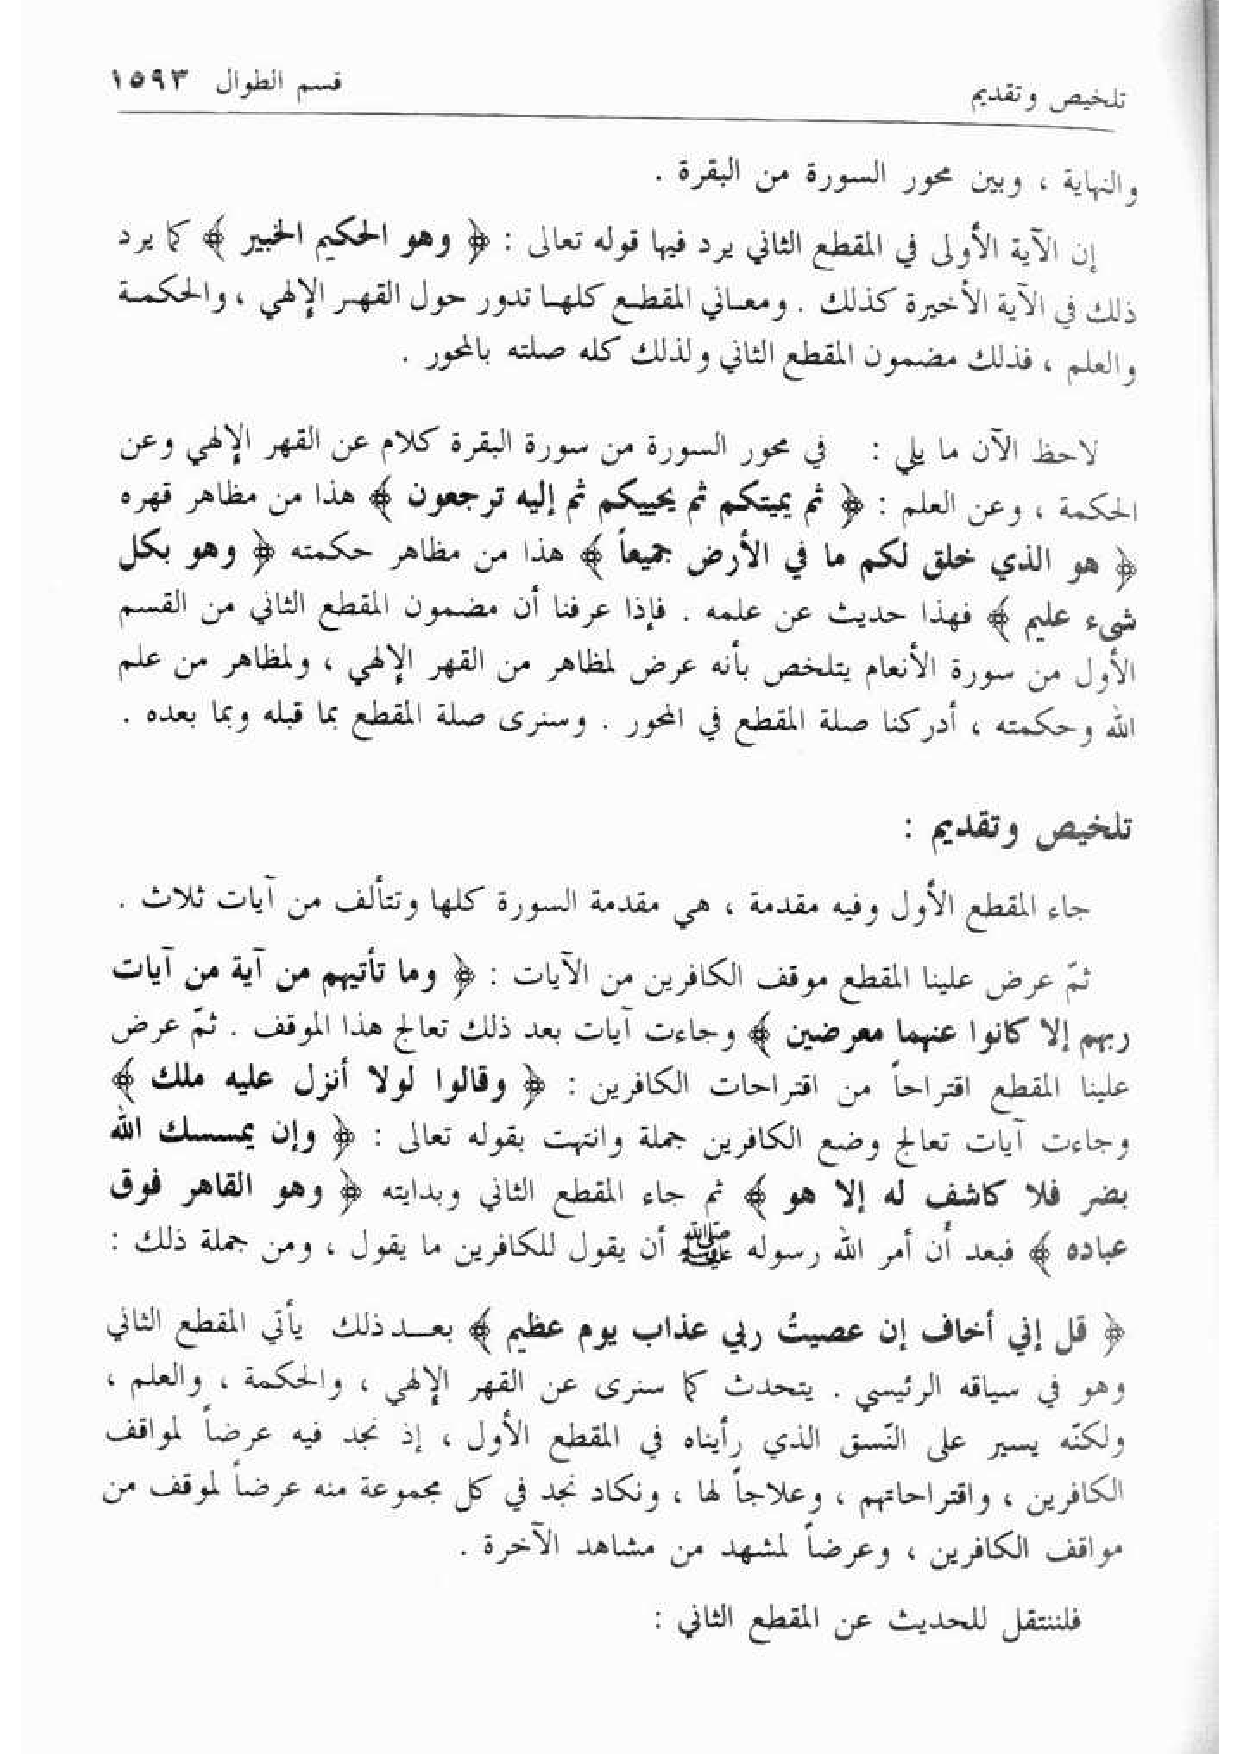 تلخيص وتقديم
قسم الطوال ١٥٩٣
والنهاية ، وبين محور السورة من البقرة .
إن الآية الأولى في المقطع الثاني يرد فيها قوله تعالى : ﴿ وهو الحكيم الخبير ﴾ كما يرد
ذلك في الآية الأخيرة كذلك . ومعاني المقطع كلها تدور حول القهر الإلهي ، والحكمة
والعلم ، فذلك مضمون المقطع الثاني ولذلك كله صلته بالمحور .
لاحظ الآن ما يلي : في محور السورة من سورة البقرة كلام عن القهر الإلهي وعن
الحكمة ، وعن العلم : ﴿ ثم يميتكم ثم يحييكم ثم إليه ترجعون ﴾ هذا من مظاهر قهره
﴿ هو الذي خلق لكم ما في الأرض جميعاً ﴾ هذا من مظاهر حكمته ﴿ وهو بكل
شيء عليم ﴾ فهذا حديث عن علمه . فإذا عرفنا أن مضمون المقطع الثاني من القسم
الأول من سورة الأنعام يتلخص بأنه عرض لمظاهر من القهر الإلهي ، ولمظاهر من علم
الله وحكمته ، أدركنا صلة المقطع في المحور . وسنرى صلة المقطع بما قبله وبما بعده .
تلخيص وتقديم :
جاء المقطع الأول وفيه مقدمة ، هي مقدمة السورة كلها وتتألف من آيات ثلاث .
ثمّ عرض علينا المقطع موقف الكافرين من الآيات : ﴿ وما تأتيهم من آية من آيات
ربهم إلا كانوا عنهما معرضين ﴾ وجاءت آيات بعد ذلك تعالج هذا الموقف . ثمّ عرض
علينا المقطع اقتراحاً من اقتراحات الكافرين : ﴿ وقالوا لولا أنزل عليه ملك ﴾
وجاءت آيات تعالج وضع الكافرين جملة وانتهت بقوله تعالى : ﴿ وإن يمسسك الله
بضر فلا كاشف له إلا هو ﴾ ثم جاء المقطع الثاني وبدايته ﴿ وهو القاهر فوق
عباده ﴾ فبعد أن أمر الله رسوله ﷺ أن يقول للكافرين ما يقول ، ومن جملة ذلك :
﴿ قل إني أخاف إن عصيتُ ربي عذاب يوم عظيم ﴾ بعد ذلك يأتي المقطع الثاني
وهو في سياقه الرئيسي . يتحدث كما سنرى عن القهر الإلهي ، والحكمة ، والعلم ،
ولكنّه يسير على النّسق الذي رأيناه في المقطع الأول ، إذ نجد فيه عرضاً لمواقف
الكافرين ، واقتراحاتهم ، وعلاجاً لها ، ونكاد نجد في كل مجموعة منه عرضاً لموقف من
مواقف الكافرين ، وعرضاً لمشهد من مشاهد الآخرة .
فلننتقل للحديث عن المقطع الثاني :